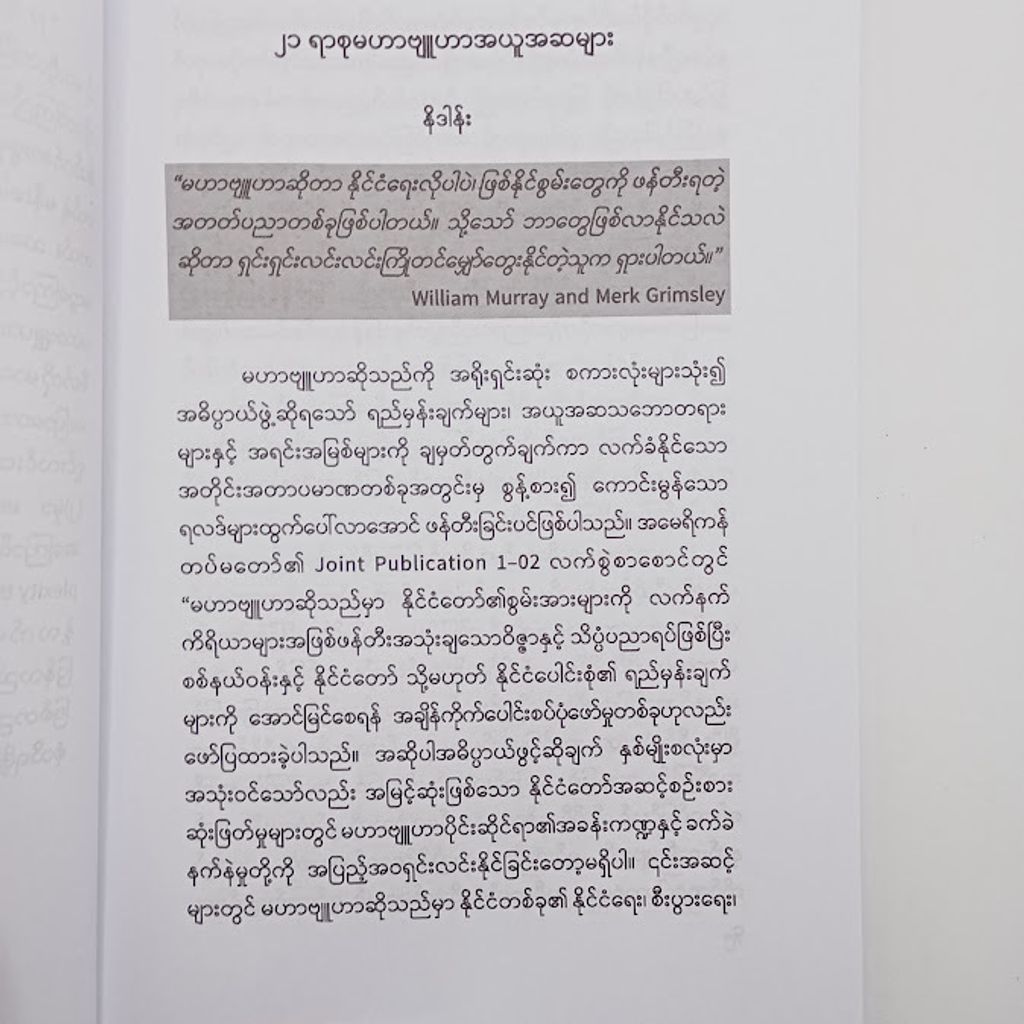 ၂၁ ရာစုမဟာဗျူဟာအယူအဆများ
နိဒါန်း
“မဟာဗျူဟာဆိုတာ နိုင်ငံရေးလိုပါပဲ၊ ဖြစ်နိုင်စွမ်းတွေကို ဖန်တီးရတဲ့
အတတ်ပညာတစ်ခုဖြစ်ပါတယ်။ သို့သော် ဘာတွေဖြစ်လာနိုင်သလဲ
ဆိုတာ ရှင်းရှင်းလင်းလင်းကြိုတင်မျှော်တွေးနိုင်တဲ့သူက ရှားပါတယ်။”
William Murray and Merk Grimsley
မဟာဗျူဟာဆိုသည်ကို အရိုးရှင်းဆုံး စကားလုံးများသုံး၍
အဓိပ္ပာယ်ဖွဲ့ဆိုရသော် ရည်မှန်းချက်များ၊ အယူအဆသဘောတရား
များနှင့် အရင်းအမြစ်များကို ချမှတ်တွက်ချက်ကာ လက်ခံနိုင်သော
အတိုင်းအတာပမာဏတစ်ခုအတွင်းမှ စွန့်စား၍ ကောင်းမွန်သော
ရလဒ်များထွက်ပေါ်လာအောင် ဖန်တီးခြင်းပင်ဖြစ်ပါသည်။ အမေရိကန်
တပ်မတော်၏ Joint Publication 1-02 လက်စွဲစာစောင်တွင်
“မဟာဗျူဟာဆိုသည်မှာ နိုင်ငံတော်၏စွမ်းအားများကို လက်နက်
ကိရိယာများအဖြစ်ဖန်တီးအသုံးချသောဝိဇ္ဇာနှင့် သိပ္ပံပညာရပ်ဖြစ်ပြီး
စစ်နယ်ဝန်းနှင့် နိုင်ငံတော် သို့မဟုတ် နိုင်ငံပေါင်းစုံ၏ ရည်မှန်းချက်
များကို အောင်မြင်စေရန် အချိန်ကိုက်ပေါင်းစပ်ပုံဖော်မှုတစ်ခုဟုလည်း
ဖော်ပြထားခဲ့ပါသည်။ အဆိုပါအဓိပ္ပာယ်ဖွင့်ဆိုချက် နှစ်မျိုးစလုံးမှာ
အသုံးဝင်သော်လည်း အမြင့်ဆုံးဖြစ်သော နိုင်ငံတော်အဆင့်စဉ်းစား
ဆုံးဖြတ်မှုများတွင် မဟာဗျူဟာပိုင်းဆိုင်ရာ၏အခန်းကဏ္ဍနှင့် ခက်ခဲ
နက်နဲမှုတို့ကို အပြည့်အဝရှင်းလင်းနိုင်ခြင်းတော့မရှိပါ။ ၎င်းအဆင့်
များတွင် မဟာဗျူဟာဆိုသည်မှာ နိုင်ငံတစ်ခု၏ နိုင်ငံရေး၊ စီးပွားရေး၊